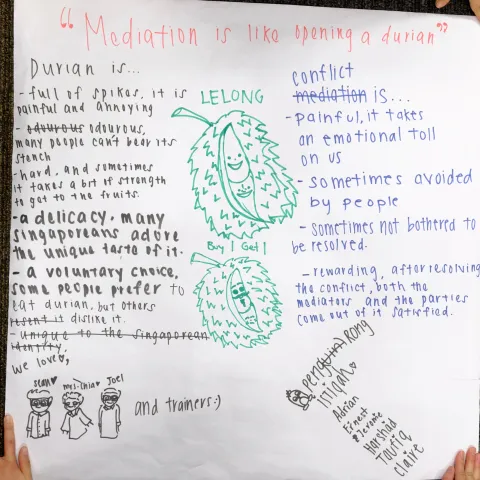 "Mediation is like opening a durian"
Durian is...
- full of spikes, it is
painful and annoying
- odourous odourous,
many people can't bear its
stench
- hard, and sometimes
it takes a bit of strength
to get to the fruits.
- a delicacy. many
singaporeans adore
the unique taste of it.
- a voluntary choice,
some people prefer to
eat durian, but others
resent it dislike it.
- unique to the singaporean
identity.
we love,
sean
mrs. thia
Joel
and trainers:)
LELONG
Buy 1 Get 1
conflict
mediation is...
- painful, it takes
an emotional toll
on us
- sometimes avoided
by people
- sometimes not bothered to
be resolved.
- rewarding, after resolving
the conflict, both the
mediators and the parties
come out of it satisfied.
Rong
Adrian
Ernest
Jerome
Harshad
Taufiq
Claire